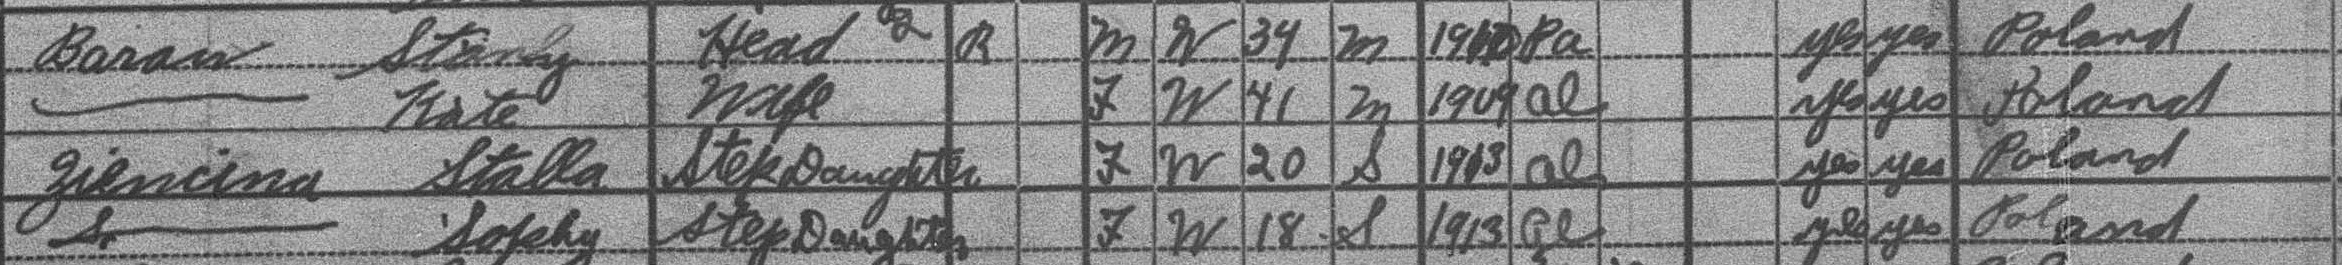 Baran Stanly Head R M W 34 M 1910 Pa yes yes Poland
Kate Wife F W 41 M 1909 Al yes yes Poland
Ziencina Stalla Step Daughter F W 20 S 1913 Al yes yes Poland
S. Sophy Step Daughter F W 18 S 1913 Al yes yes Poland